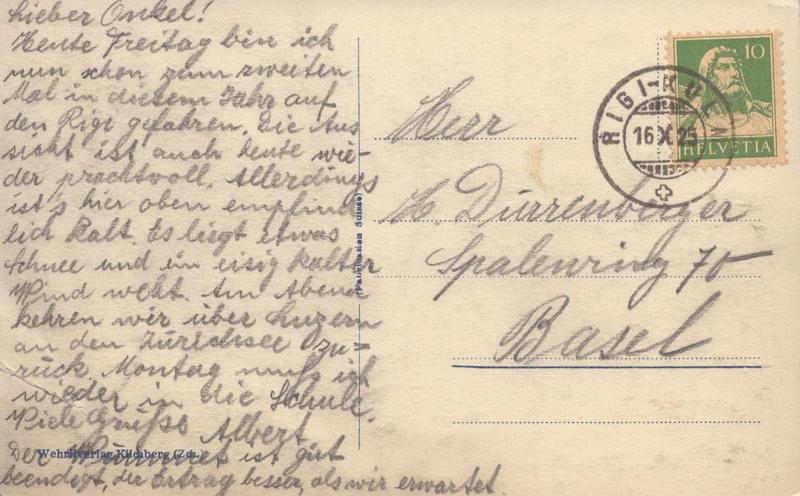 Lieber Onkel!
Heute Freitag bin ich
nun schon zum zweiten
Mal in diesem Jahr auf
den Rigi gefahren. Die Aus
sicht ist auch heute wie-
der prachtvoll. Allerdings
ist's hier oben empfind
lich kalt. Es liegt etwas
Schnee und ein eisig kalter
Wind weht. Am Abend
kehren wir über Luzern
an den Zürichsee zu-
rück. Montag muss ich
wieder in die Schule.
Viele Grüsse Albert
Der Wümmet ist gut
beendigt, der Ertrag besser, als wir erwartet.
Wehrliverlag Kilchberg (Zch.)
10
HELVETIA
RIGI-KULM
16 X 25
Herr
H. Dürrenberger
Spalenring 70
Basel